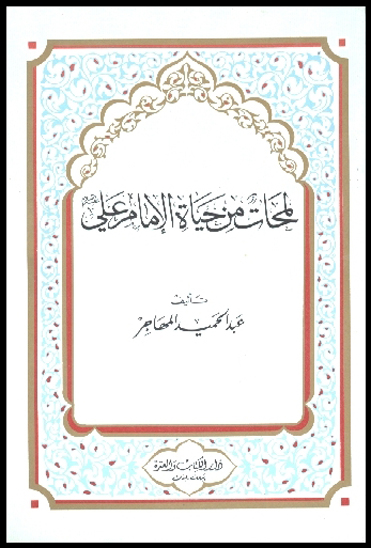 لمحات من حياة الإمام علي
تأليف
عبد الحميد المهاجر
دار الكتاب والعترة